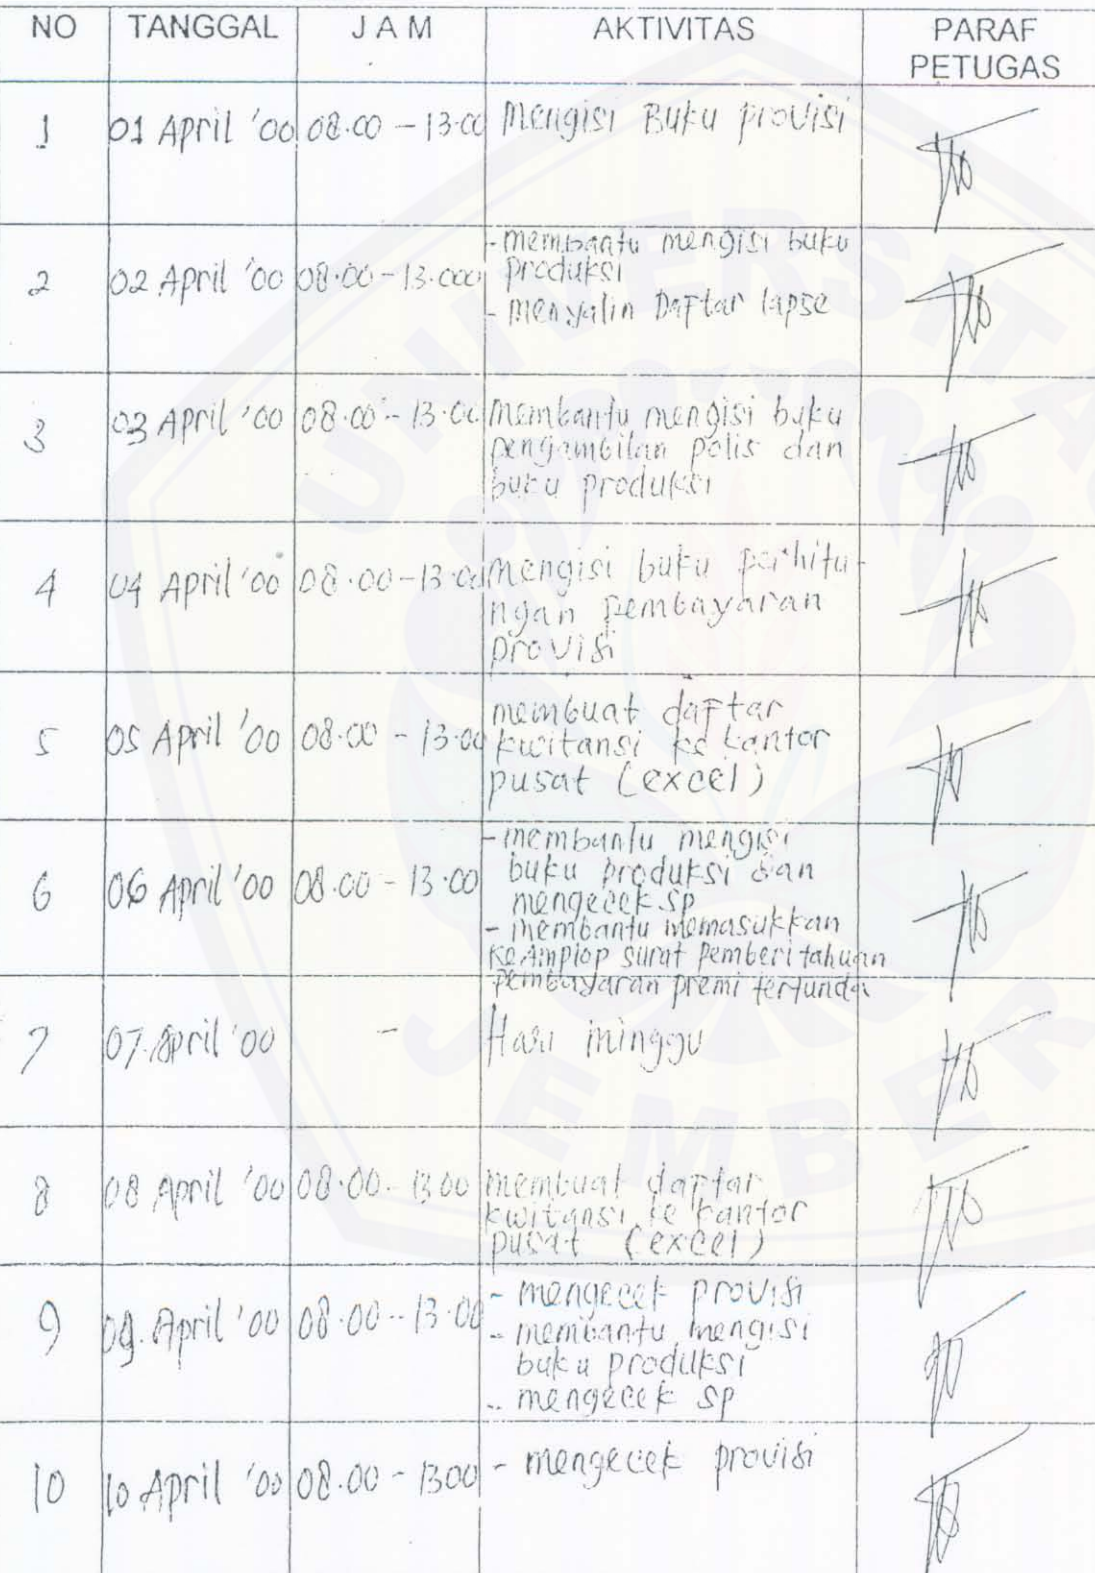 NO TANGGAL J A M AKTIVITAS PARAF
PETUGAS
1 01 April '00 08.00 - 13.00 Mengisi Buku provisi
2 02 April '00 08.00 - 13.000 - membantu mengisi buku
produksi
- menyalin Daftar lapse
3 03 April '00 08.00 - 13.00 Membantu mengisi buku
pengambilan polis dan
buku produksi
4 04 April '00 08.00 - 13.00 mengisi buku perhitu-
ngan pembayaran
provisi
5 05 April '00 08.00 - 13.00 membuat daftar
kwitansi ke kantor
pusat (excel)
6 06 April '00 08.00 - 13.00 - membantu mengisi
buku produksi dan
mengecek sp
- membantu memasukkan
keAmplop surat pemberitahuan
pembayaran premi tertunda
7 07 April '00 - Hari minggu
8 08 April '00 08.00 - 13.00 membuat daftar
kwitansi ke kantor
pusat (excel)
9 09. April '00 08.00 - 13.00 - mengecek provisi
- membantu mengisi
buku produksi
- mengecek sp
10 10 April '00 08.00 - 1300 - mengecek provisi
UNIVERSITAS
JEMBER